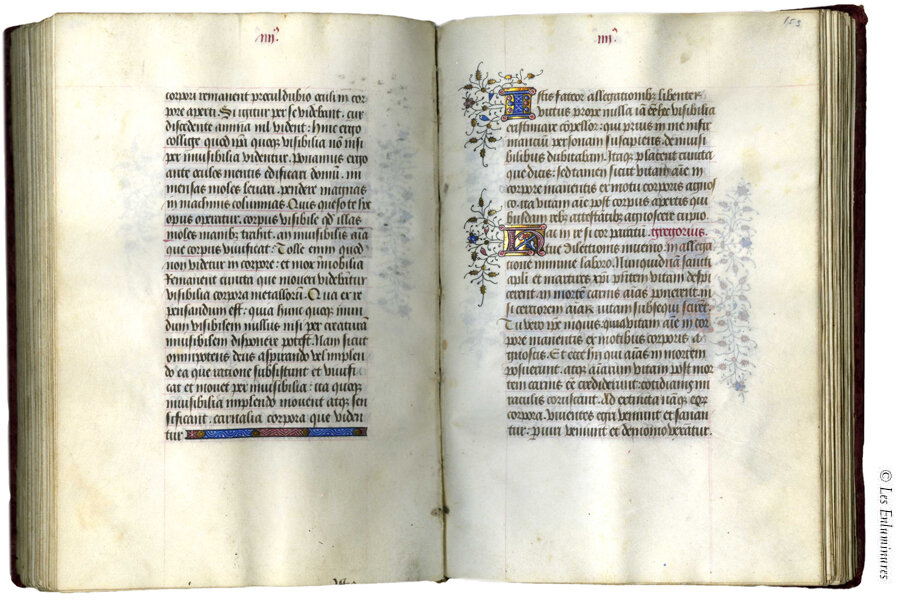 iiij°
corpori remanent proculdubio oculi in cor
pore aperti. Si igitur per se videbant. cur
discedente anima nil vident: hinc ergo
collige quod ip̄a quoqꝫ visibilia nō nisi
per inuisibilia videntur. Ponamus ergo
ante oculos mentis edificari domū. im
mensas moles leuari. pendere magnas
in machinis columnas. Quis queso te hoc
opus operatur. corpus visibile qd̄ illas
moles manibꝫ trahit. an inuisibilis aīa
que corpus viuificat: Tolle enim quod
non videtur in corpore: et mox īmobilia
Remanent cuncta que moueri videbātur
visibilia corpora metallorū. Qua ex re
pensandum est. quia hunc quoqꝫ mun
dum visibilem nullus nisi per creaturā
inuisibilem disponere potest. Nam sicut
omnipotens deus aspirando vel implen
do ea que ratione subsistunt et viuifi
cat et mouet per inuisibilia: ita quoqꝫ
inuisibilia implendo mouent atqꝫ sen
sificant. carnalia corpora que viden
tur
iiij°
153
Istis fateor allegationibꝫ libenter
victus prope nulla iā eē hec visibilia
estimare cōpellor. qui prius in me infir
mantiū personam suscipiens. de inuisi
bilibus dubitabam. Itaqꝫ placent cuncta
que dicis: sed tamen sicut vitam aīe in
corpore manentis ex motu corporis agnos
co. ita vitam aīe post corpus apertis qui
busdam rebꝫ attestātibꝫ agnoscere cupio
Hac in re si cor paratū. Gregorius.
tue dilectionis inuenio. in allega
tione minime laboro. Nunquid nā sancti
apl̄i et martires xp̄i pn̄tem vitam despi
cerent. in mortē carnis aīas ponerent. ni
si certiorem aīaꝝ vitam subsequi scirēt
Tu vero ipe inquis. quia vitam aīe in cor
pore manentis ex motibus corporis a
gnoscis. Et ecce hii qui aīas in mortem
posuerunt. atqꝫ aīarum vitam post mor
tem carnis eē crediderunt: cotidianis mi
raculis coruscant. Ad extincta nāqꝫ eoꝝ
corpora. viuentes egri veniunt et sanan
tur: periuri veniunt et demonio vexātur.
© Les Enluminures